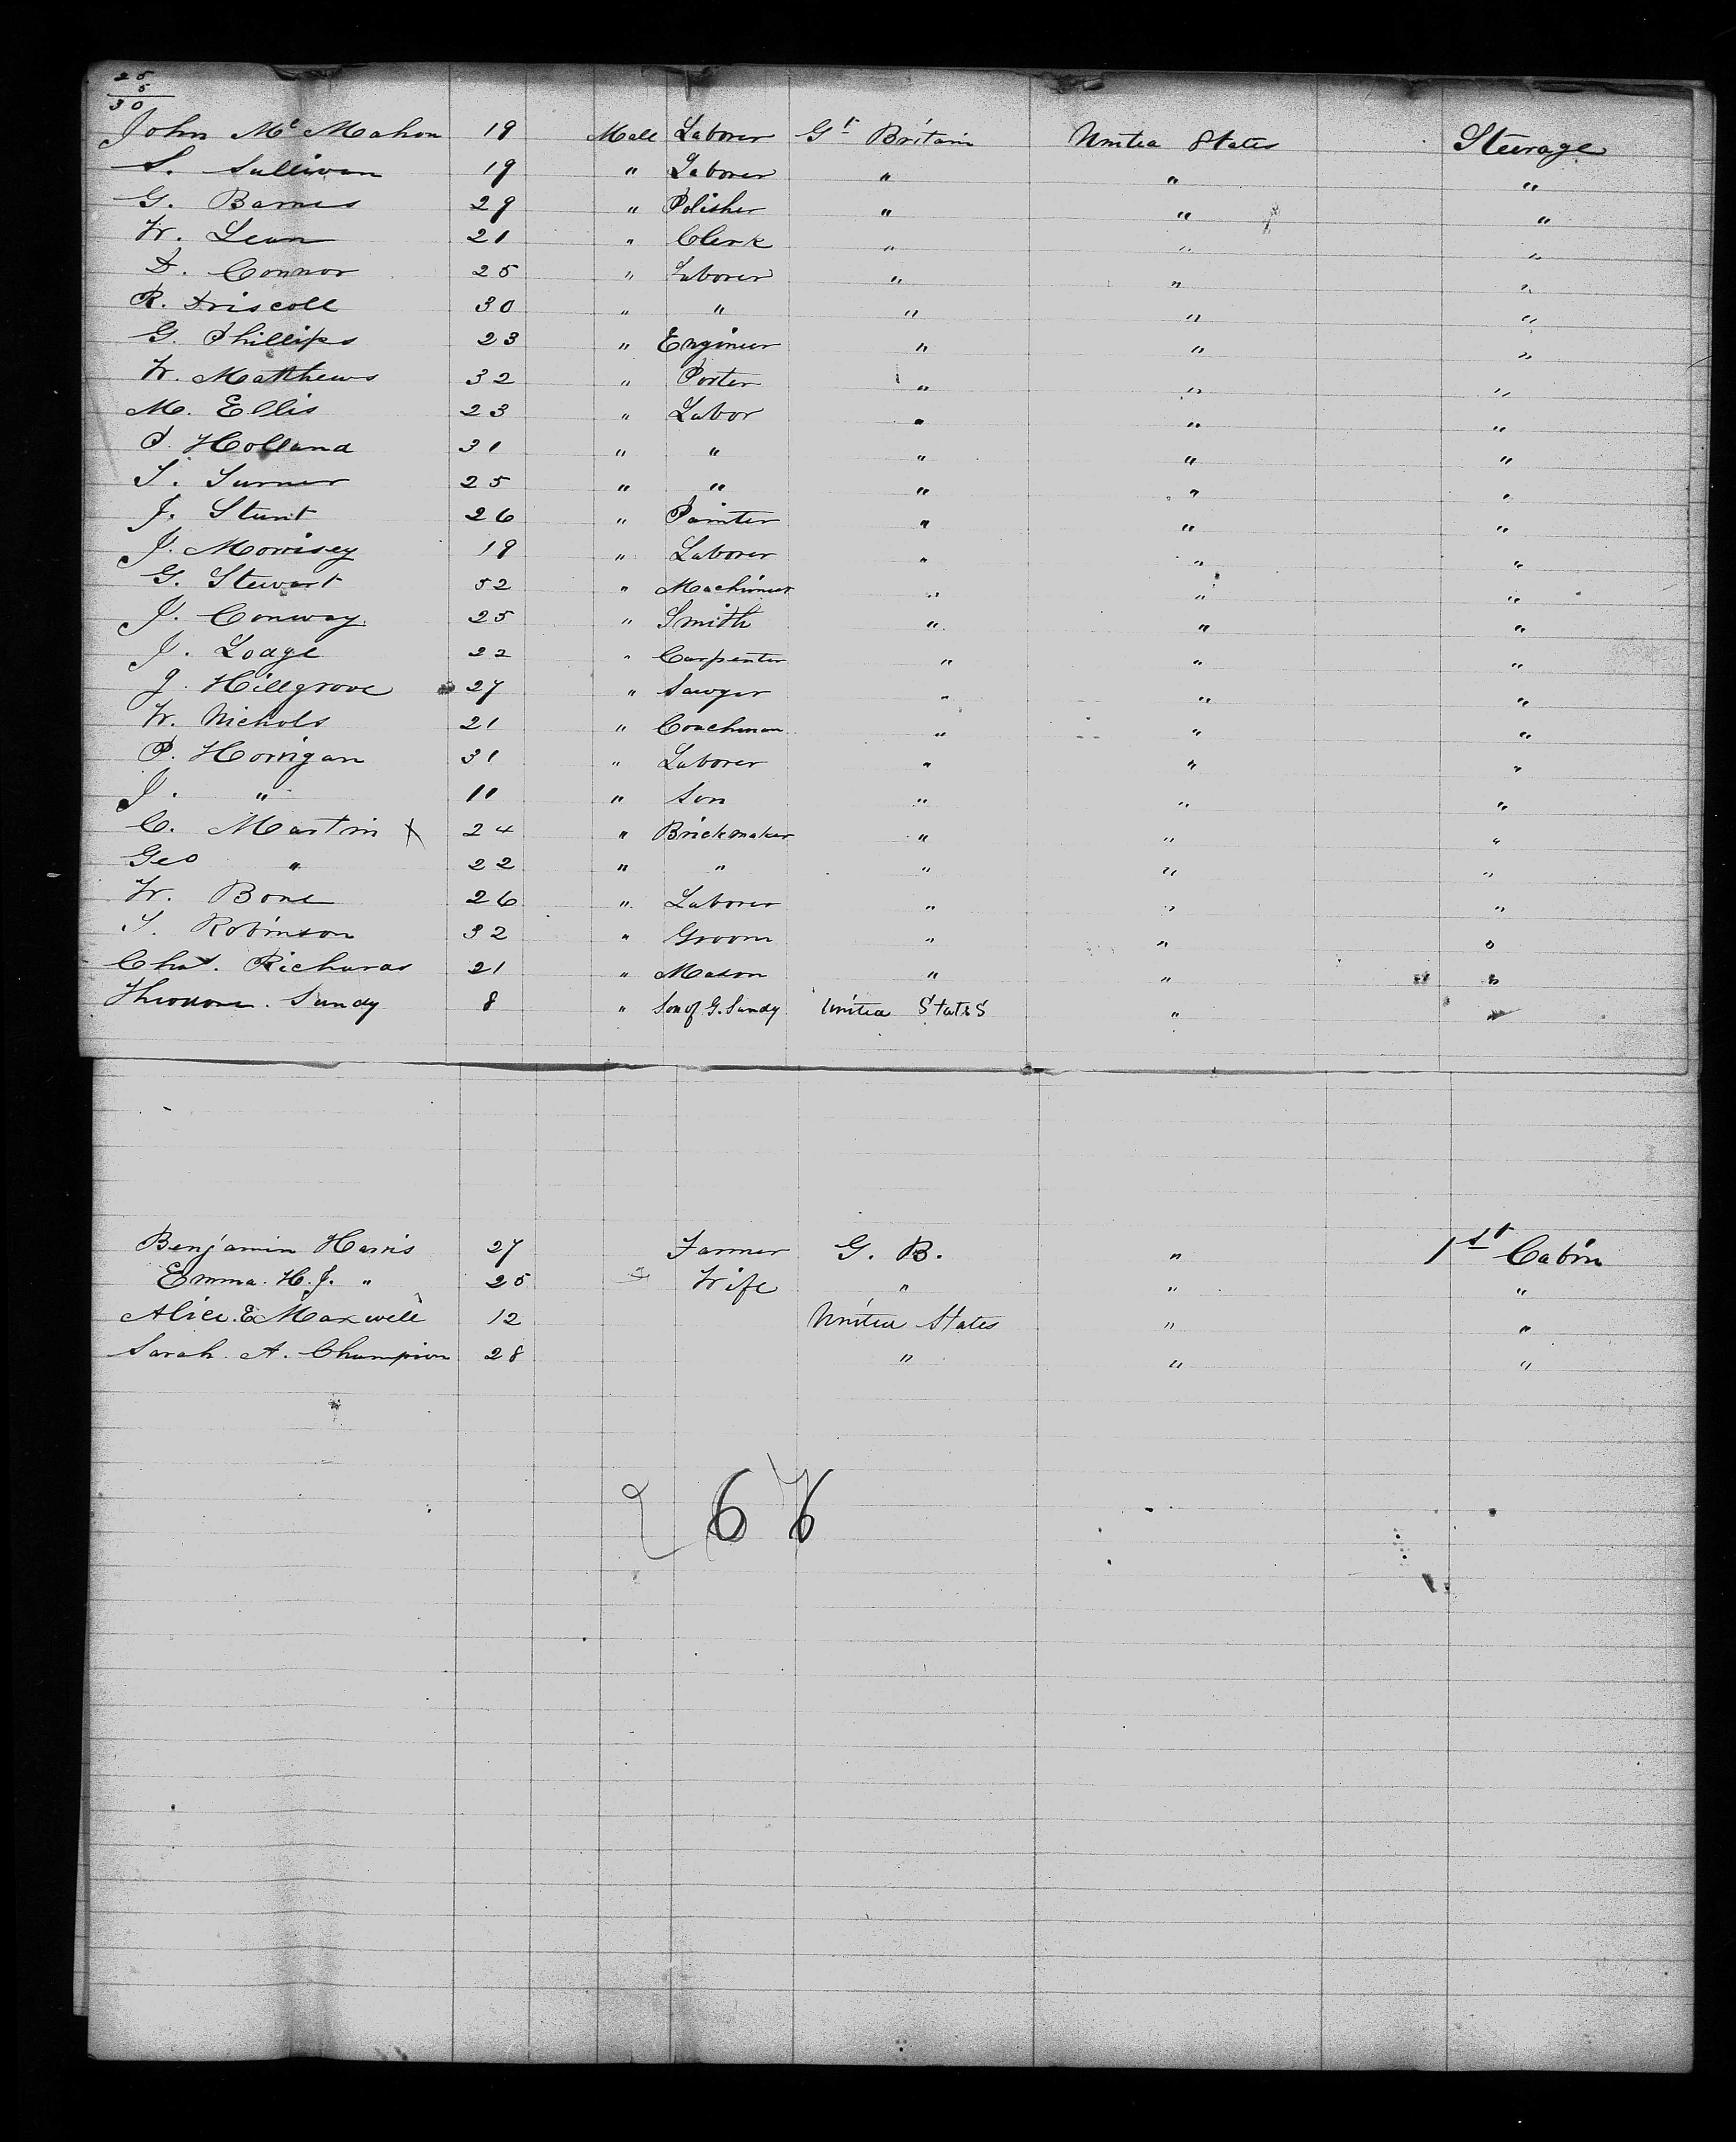 25
5
30
John Mc Mahon 19 Male Laborer Gt Britain United States Steerage
S. Sullivan 19 " Laborer " " "
G. Barnes 29 " Polisher " " "
W. Lean 21 " Clerk " " "
D. Connor 25 " Laborer " " "
R. Driscoll 30 " " " " "
G. Phillips 23 " Engineer " " "
W. Matthews 32 " Porter " " "
M. Ellis 23 " Labor " " "
P. Holland 31 " " " " "
T. Turner 25 " " " " "
J. Stunt 26 " Painter " " "
J. Morrisey 19 " Laborer " " "
G. Stewart 52 " Machinest " " "
J. Conway 25 " Smith " " "
J. Lodge 22 " Carpenter " " "
J. Hillgrove 27 " Sawyer " " "
W. Nichols 21 " Coachman " " "
P. Horrigan 31 " Laborer " " "
J. " 10 " Son " " "
C. Martin X 24 " Brickmaker " " "
Geo " 22 " " " " "
W. Bone 26 " Laborer " " "
T. Robinson 32 " Groom " " "
Chas. Richards 21 " Mason " " "
Theodore Sandy 8 " Son of G. Sandy United States " "
Benjamin Harris 27 Farmer G. B. " 1st Cabin
Emma H. J. " 25 Wife " " "
Alice E Maxwell 12 United States " "
Sarah A. Champion 28 " " "